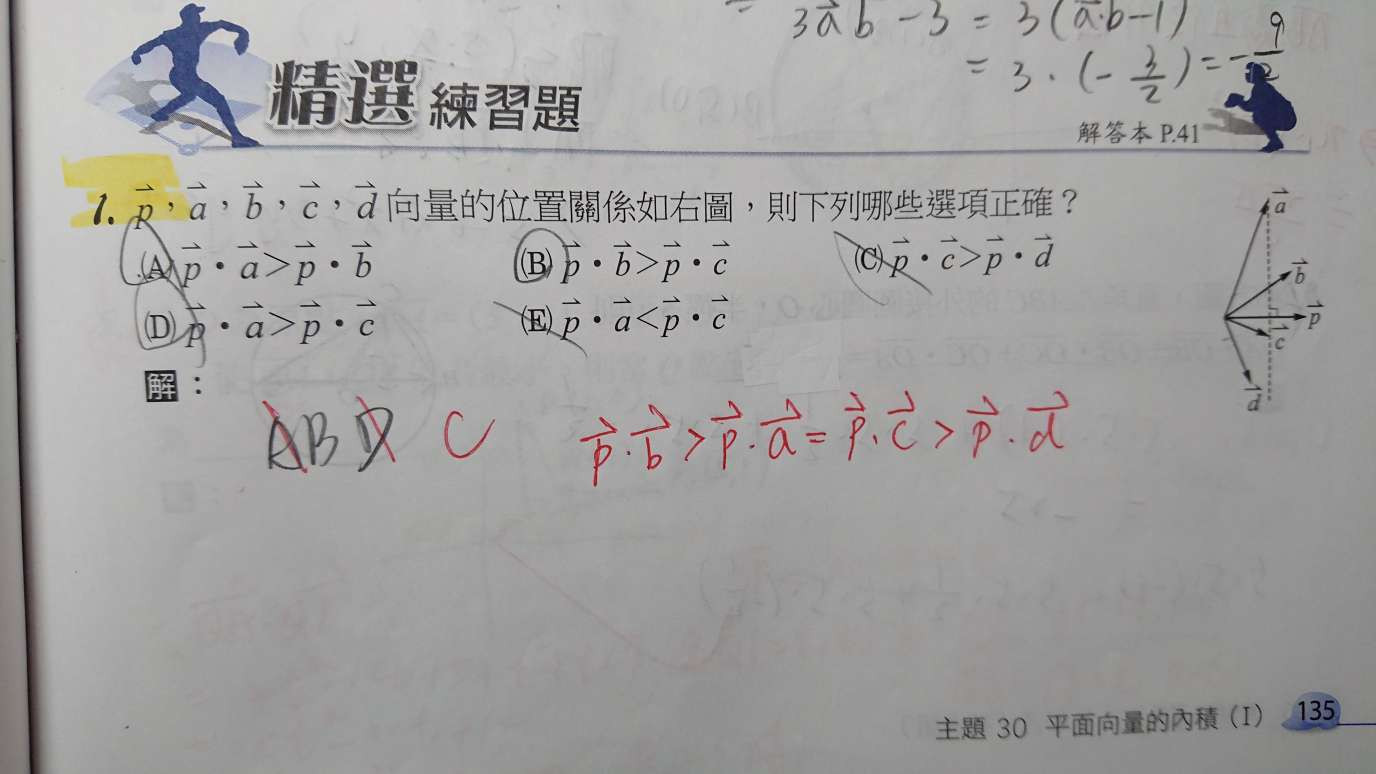 = 3a⃗b⃗ - 3 = 3(a⃗·b⃗-1)
= 3·(-3/2) = -9/2
精選 練習題
解答本 P.41
1. p⃗,a⃗,b⃗,c⃗,d⃗ 向量的位置關係如右圖,則下列哪些選項正確?
(A) p⃗·a⃗>p⃗·b⃗ (B) p⃗·b⃗>p⃗·c⃗ (C) p⃗·c⃗>p⃗·d⃗
(D) p⃗·a⃗>p⃗·c⃗ (E) p⃗·a⃗<p⃗·c⃗
a⃗
b⃗
p⃗
c⃗
d⃗
解:
ABD C p⃗·b⃗>p⃗·a⃗=p⃗·c⃗>p⃗·d⃗
主題 30 平面向量的內積(I) 135